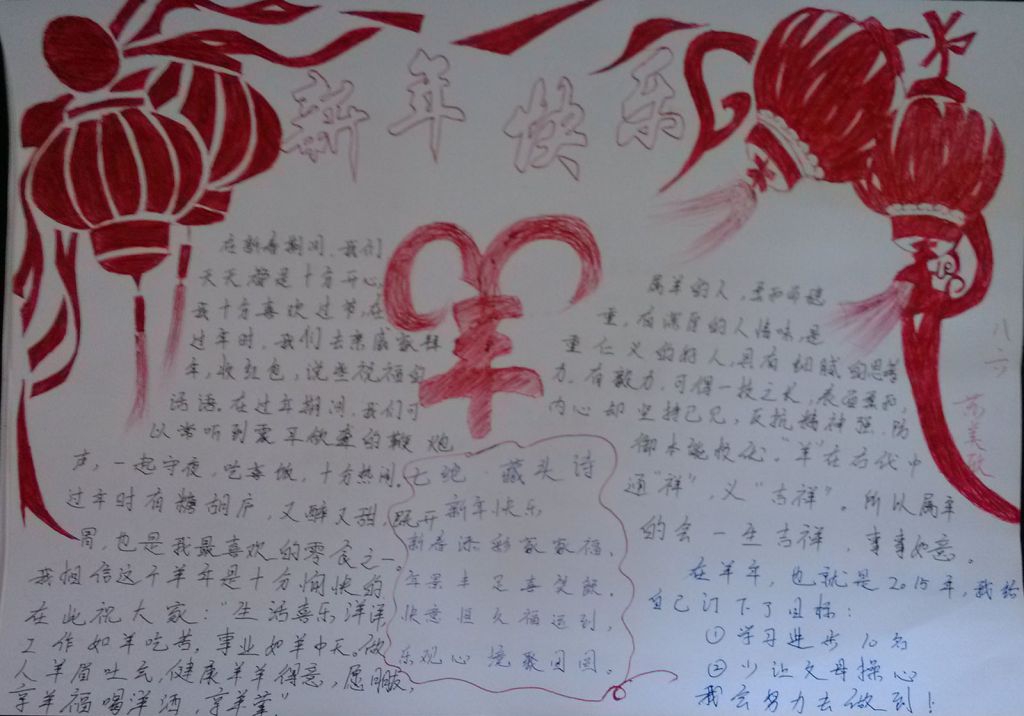 新年快乐
羊
在新春期间，我们
天天都是十分开心，
我十分喜欢过节，在
过年时，我们去亲戚家拜
年，收红包，说些祝福的
话语。在过年期间，我们可
以常听到震耳欲聋的鞭炮
声，一起守夜，吃年饭，十分热闹。
过年时有糖胡庐，又酥又甜，既开
胃，也是我最喜欢的零食之一。
我相信这个羊年是十分愉快的
在此祝大家：“生活喜乐洋洋
工作如羊吃苦，事业如羊中天，做
人羊眉吐气，健康羊羊得意，愿朋友，
享羊福喝洋酒，享羊
七绝 藏头诗
新年快乐
新春添彩家家福，
年景丰足喜笑颜，
快意恒久福运到，
乐观心境聚团圆。
属羊的人，
重，有深厚的人情味，是
重仁义的好人，具有细腻的思考
力，有毅力，可得一技之长，表面柔和，
内心却坚持己见，反抗精神强，防
御本能
“羊”在古代中
通“祥”，义“吉祥”。所以属羊
的会一生吉祥，事事如意。
在羊年，也就是2015年，我给
自己订下了目标：
①学习进步10名
②少让父母操心
我会努力去做到！
八六